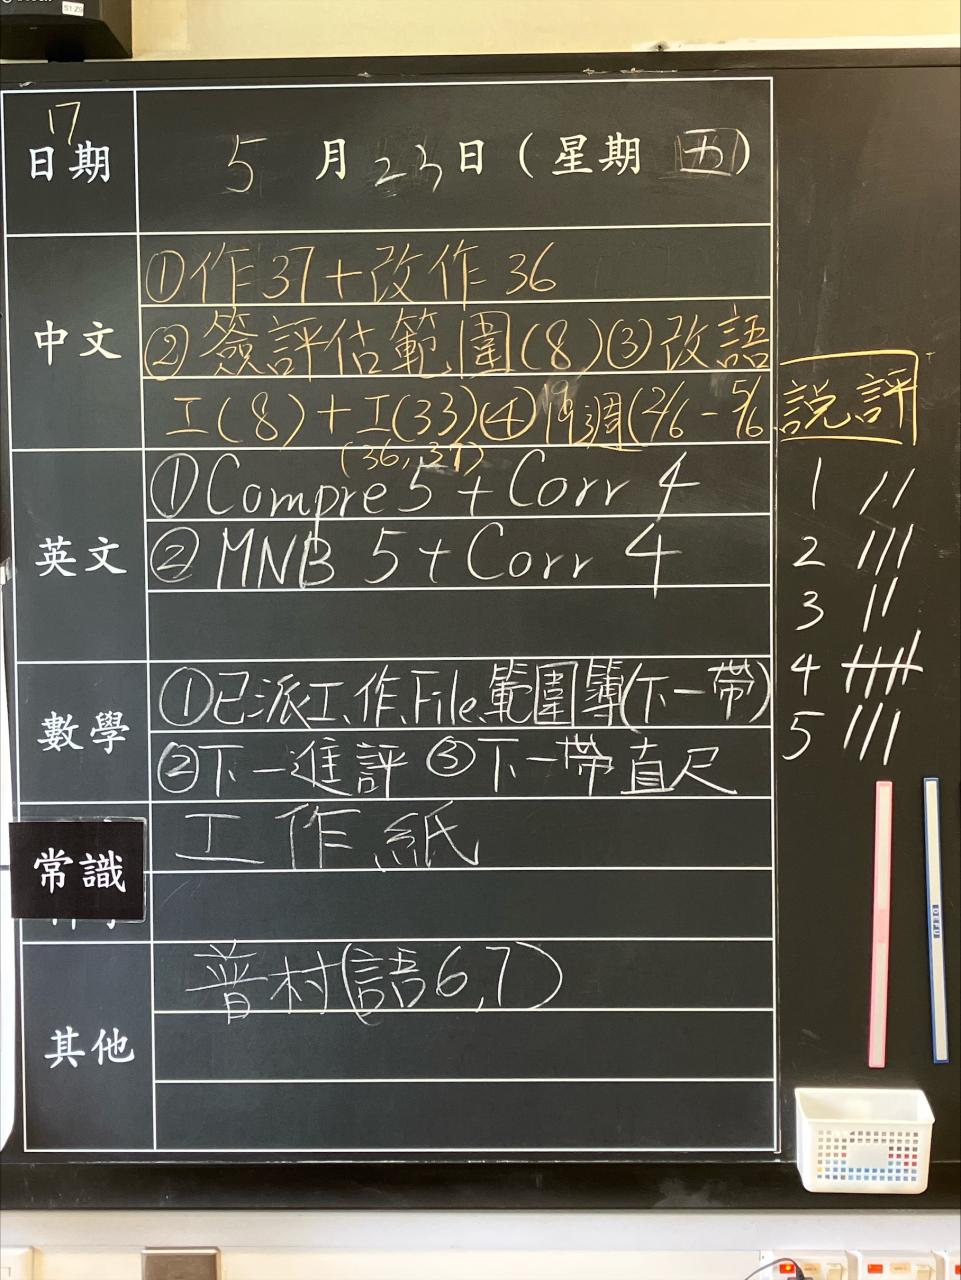 17
日期 5 月 23 日 ( 星期 五 )
中文
①作37+改作36
②簽評估範圍(8)③改語
工(8)+工(33)④19週(2/6-5/6
(36,37)
英文
①Compre 5 + Corr 4
②MNB 5 + Corr 4
數學
①已派工作,File,範圍簿(下一帶)
②下一進評 ③下一帶直尺
常識
工作紙
其他
普村(語6,7)
説評
1 //
2 ///
3 //
4
5 ///